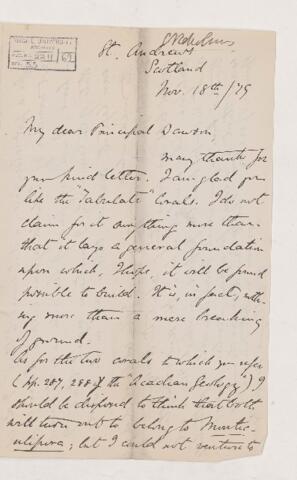 McGILL UNIVERSITY
ARCHIVES
ACC. NO. 2211 69
REF. 55
St. Andrews
Scotland
Nov. 18th/79
My dear Principal Dawson
many thanks for
your kind letter. I am glad you
like the "Tabulate" Corals. I do not
claim for it anything more than
that it lays a general foundation
upon which, I hope, it will be found
possible to build. It is, in fact, noth-
ing more than a mere breaking
of ground.
As for the two corals to which you refer
(pp. 287, 288 of the "Acadian Geology") I
should be disposed to think that both
will turn out to belong to Montic-
ulipora; but I could not venture to